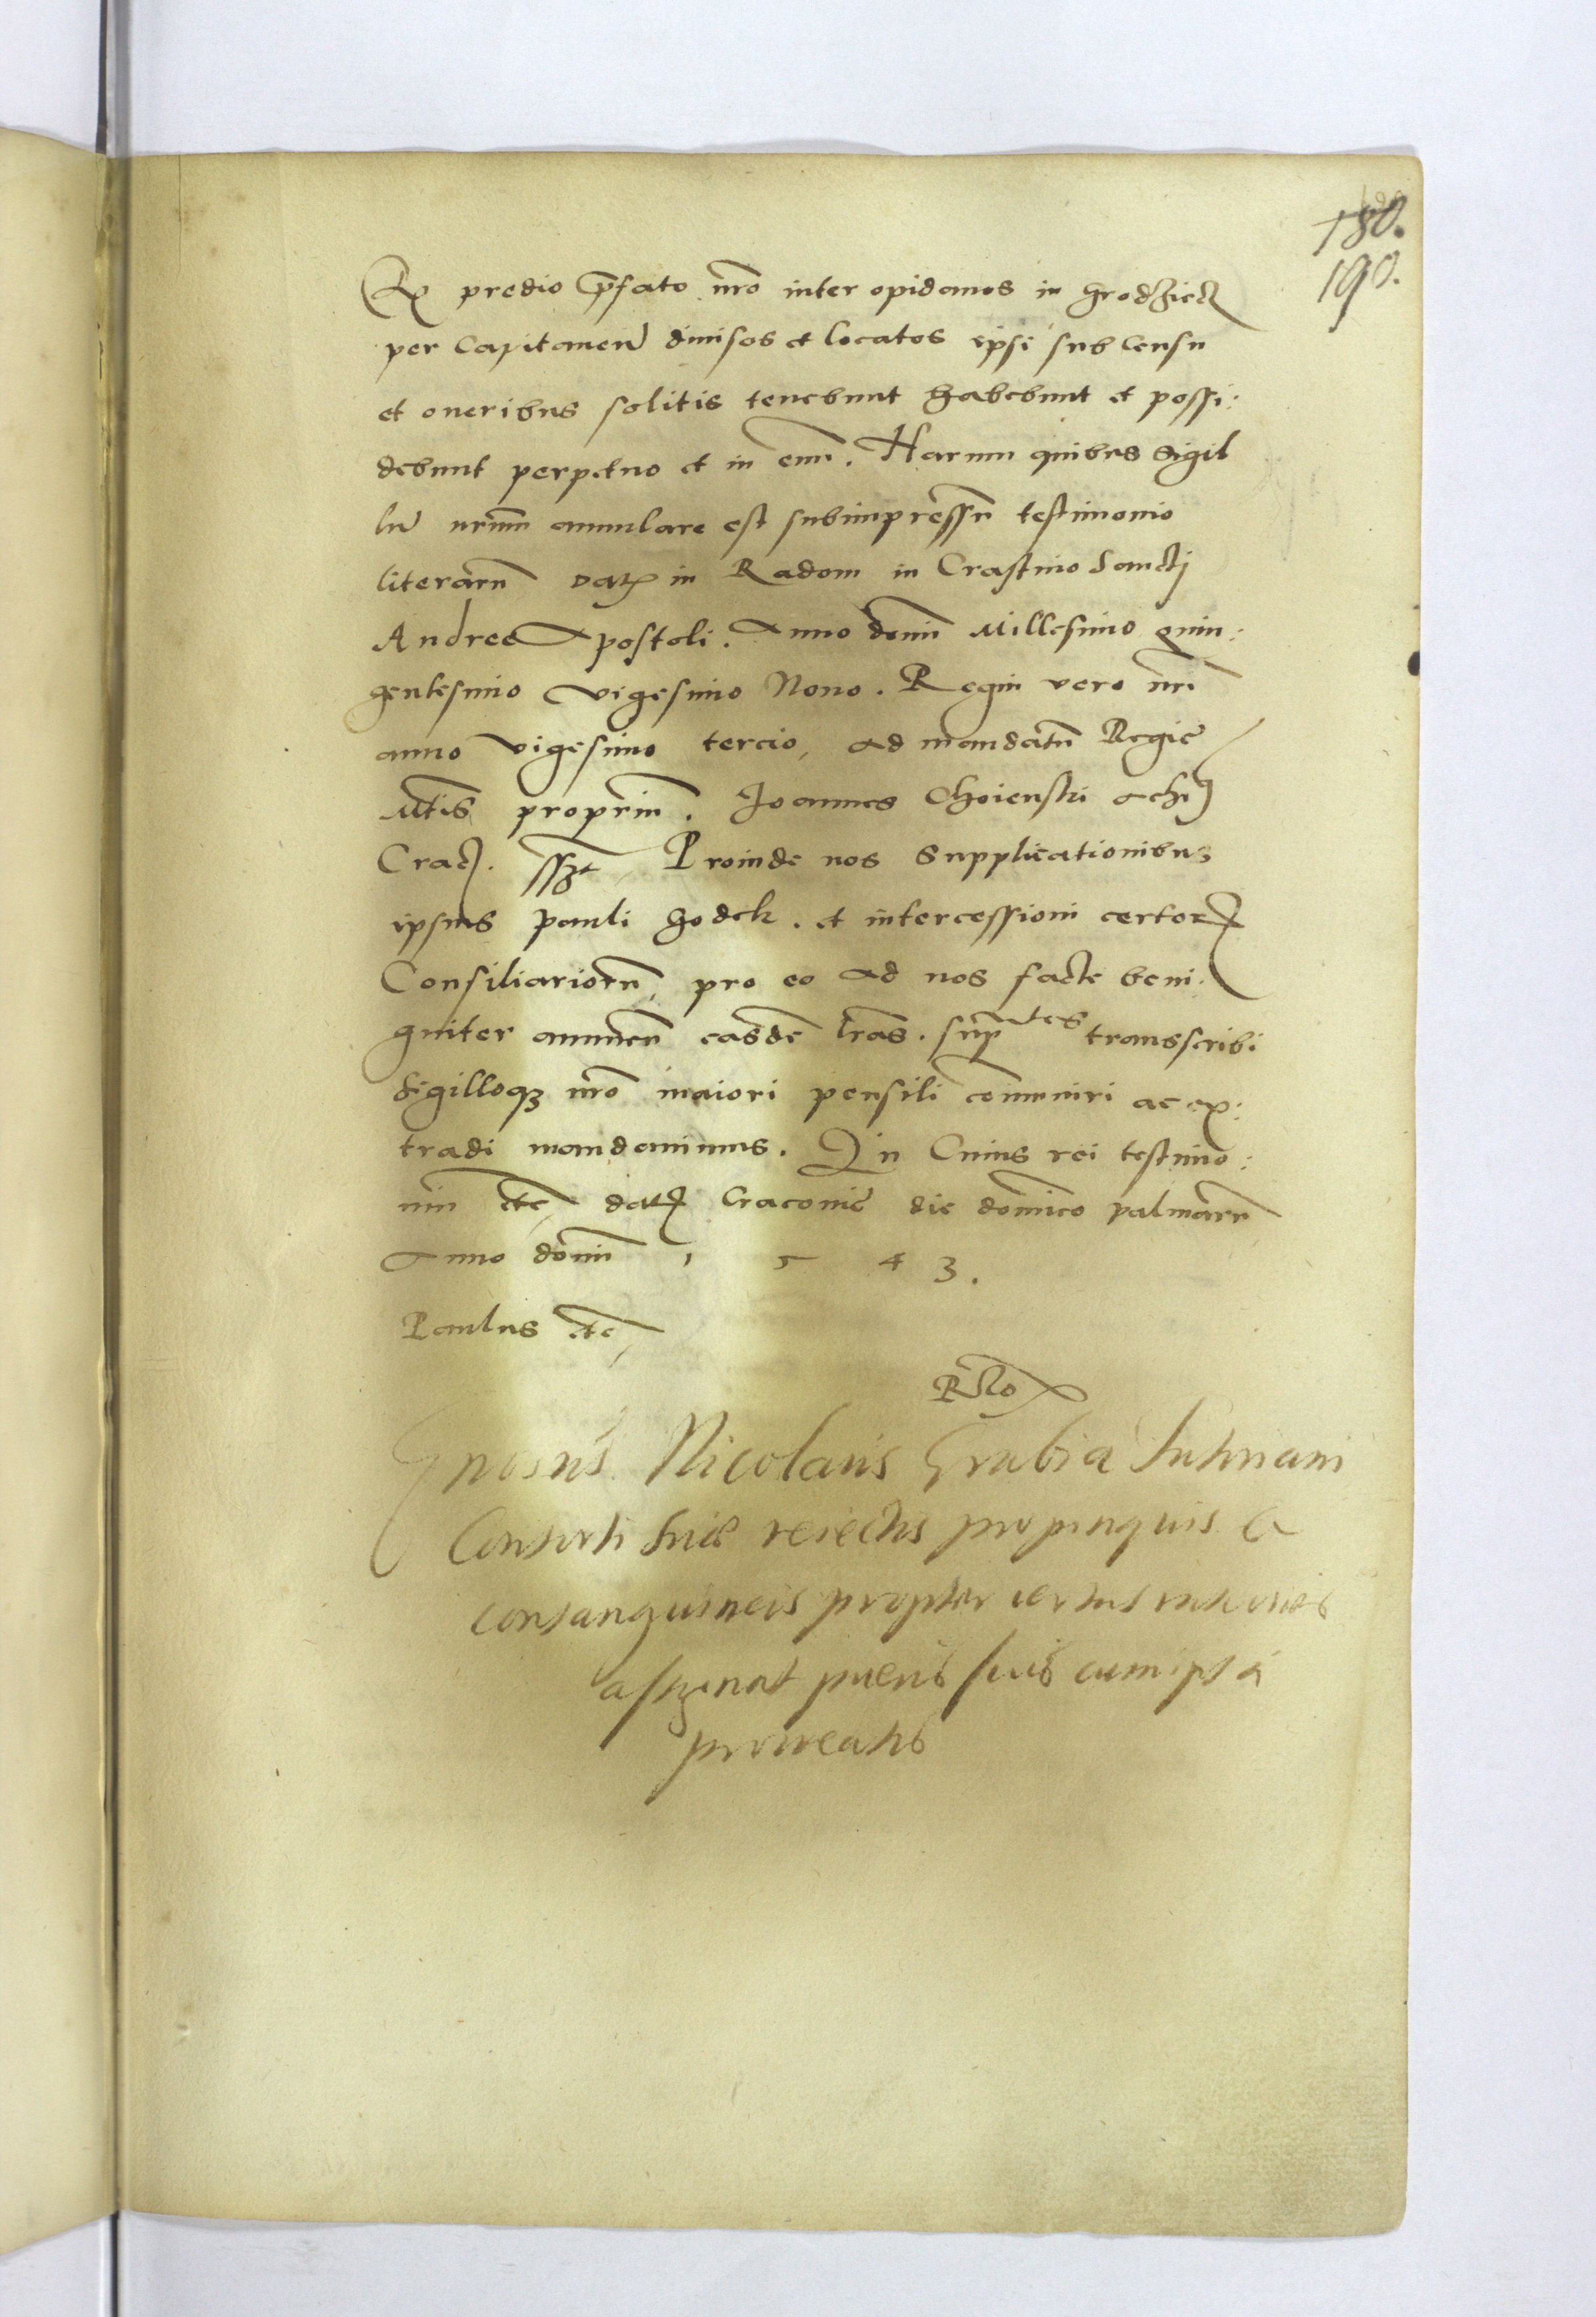 180.
190.
Ex predio p̄fato nr̄o inter opidanos in Grodziecz
per Capitaneū diuisos et locatos ipsi sub censu
et oneribus solitis tenebunt habebunt et possi:
debunt perpetuo et in euū. Harum quibus Sigil
lū nrūm annulare est subimpressū testimonio
literarū Datꝭ in Radom in Crastino Sancti
Andree Apostoli. Anno domī Millesimo quin:
gentesimo vigesimo Nono. Regni vero nrī
anno vigesimo tercio, ad mandatū Regie
Mt̄is propriū. Joannes Choienski Archiꝭ
Cracꝭ. Proinde nos Supplicationibus
ipsius Pauli Godek. et intercessioni certorꝝ
Consiliariorū, pro eo ad nos facte beni:
gniter annuen̄ easdē lrās. sup̄tes transscribi
Sigilloqꝫ nr̄o maiori pensili cōmuniri ac ex:
tradi mandauimus. In Cuius rei testimo:
niū etc̄ datꝭ Cracouie die dominico palmarū
Anno domī 1 5 4 3.
Paulus etc̄
Rl̄o
Gnosus Nicolaus Grabia Suhnam
Consorti suæ reiectis propinquis &
consanguineis propter certas rationes
assignat pueris suis cum ipsa
procreatis